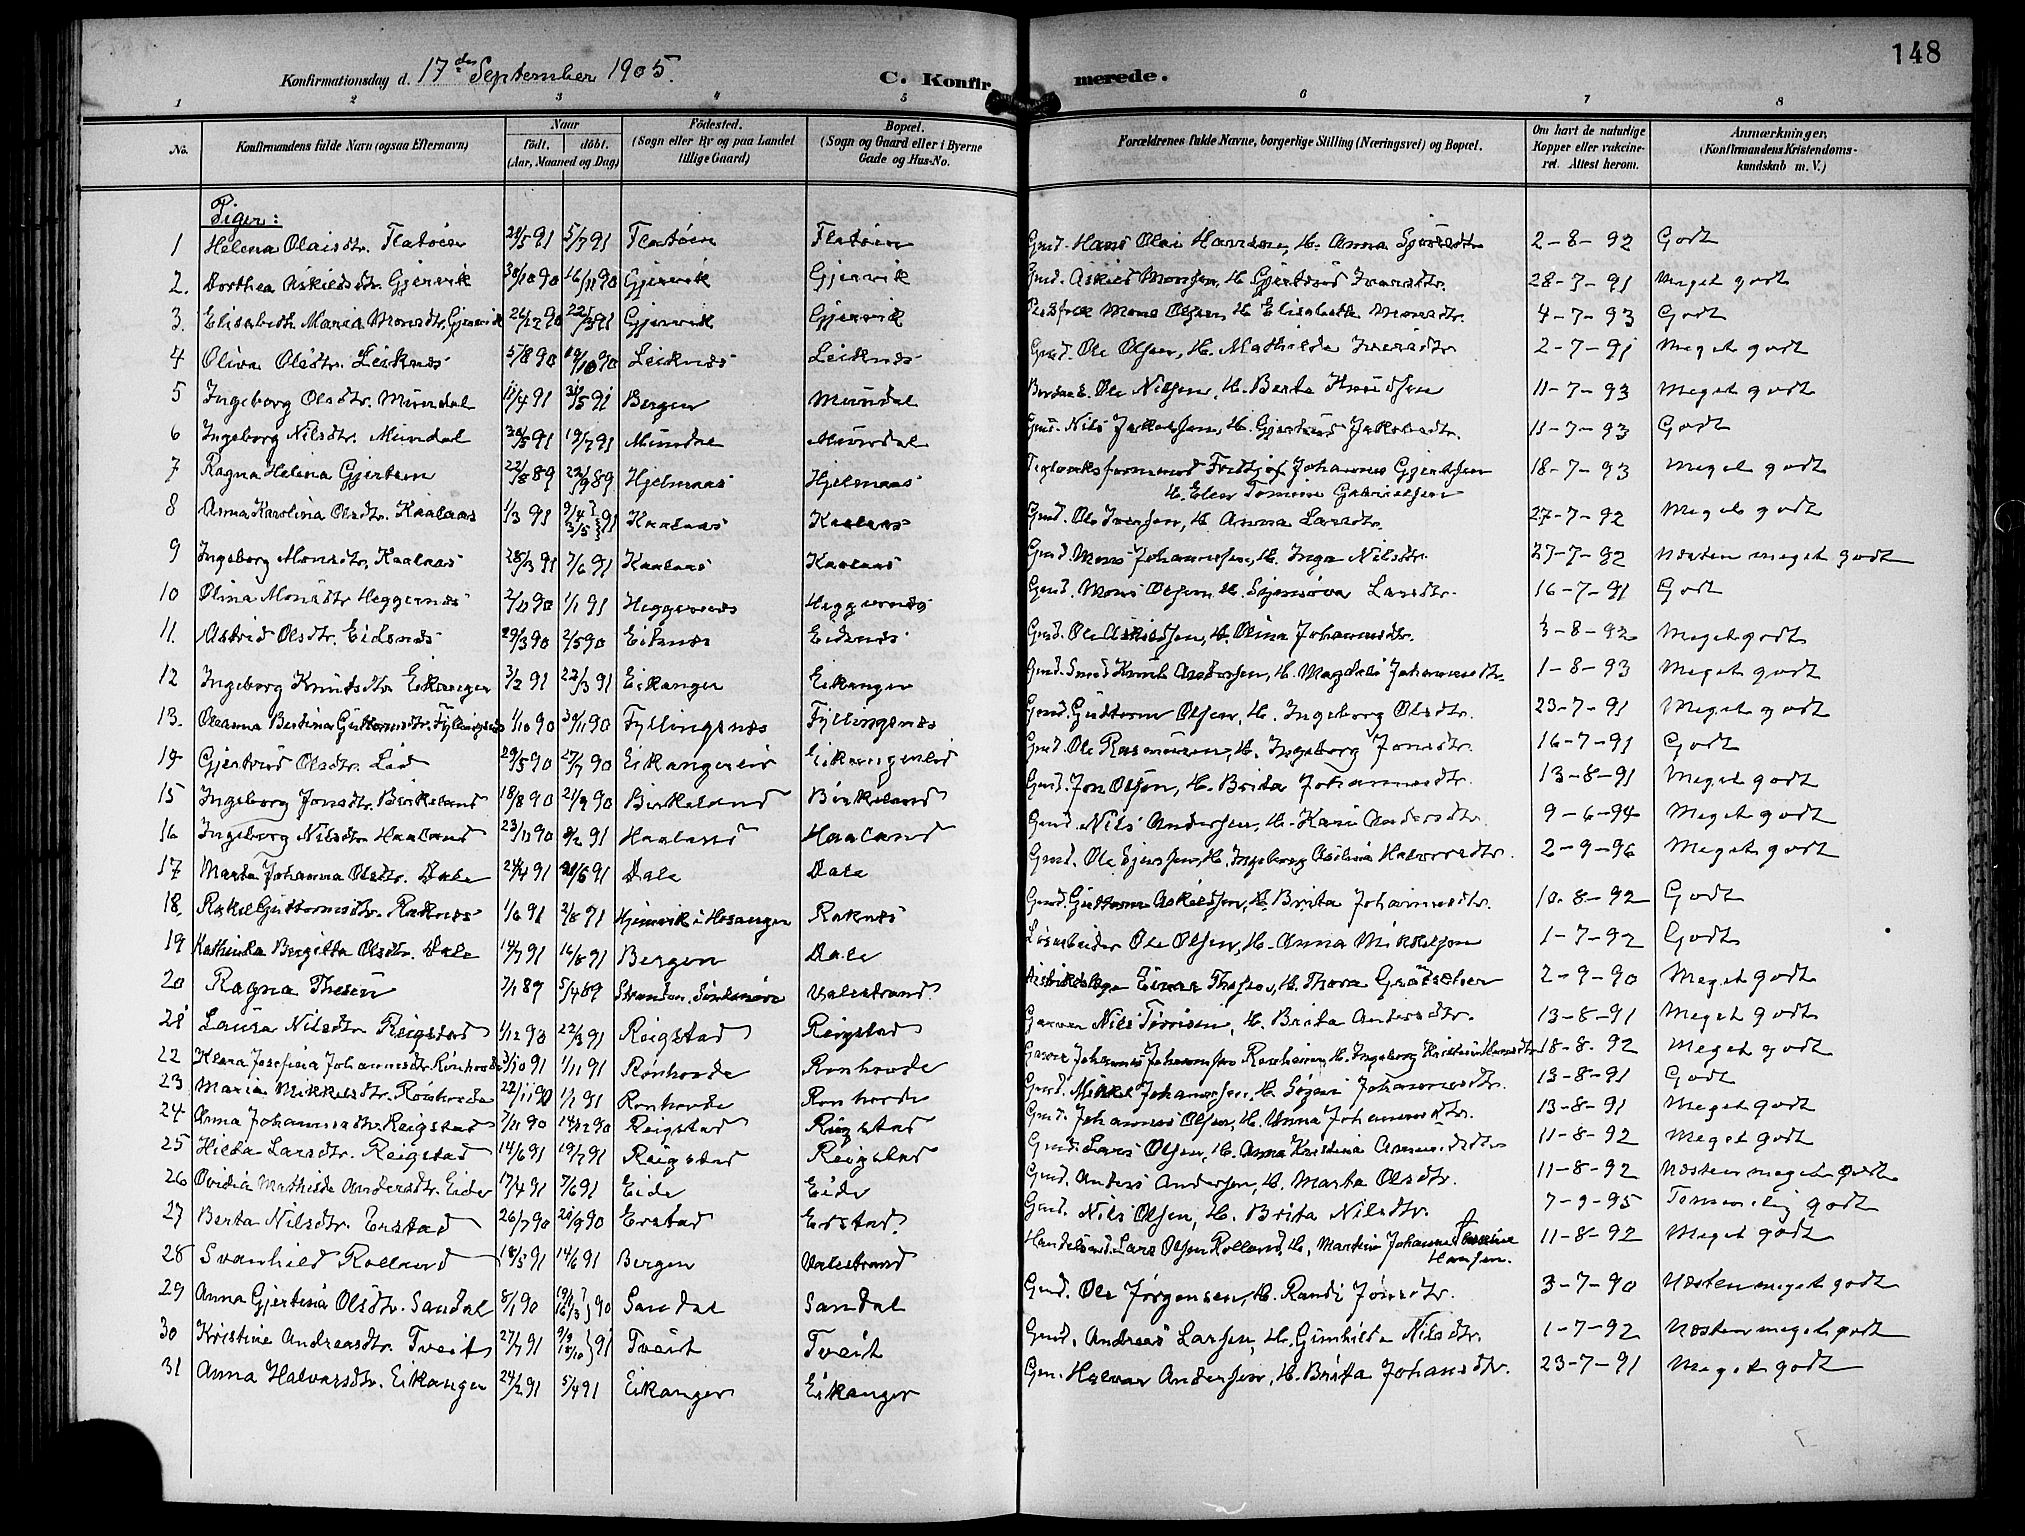 148
Konfirmationsdag d. 17de September 1905. C. Konfirmerede.
1 2 3 4 5 6 7 8
No. Konfirmandens fulde Navn (ogsaa Efternavn) Naar født. døbt. (Aar, Maaned og Dag) Fødested. (Sogn eller By og paa Landet tillige Gaard) Bopæl. (Sogn og Gaard eller i Byerne Gade og Hus-No. Forældrenes fulde Navne, borgerlige Stilling (Næringsvei) og Bopæl. Om havt de naturlige Kopper eller vakcineret. Attest herom. Anmærkninger, (Konfirmandens Kristendomskundskab m. V.)
Piger:
1 Helena Olaisdtr. Flatøen 5/7 91 Flatøen Flatøen Gmd. Hans Olai Hansen, H. Anna 2-8-92 Godt
2. Dorthea Askildsdtr. Gjervik 30/10 90 16/11 90 Gjervik Gjervik Gmd. Askild Monsen, H. Gjertrud Iversdtr. 28-7-91 Meget godt
3. Elisabeth Maria Monsdtr. Gjervik 26/12 90 22/3 91 Gjervik Gjervik Mons Olsen, H. Elisabeth Monsdtr. 4-7-93 Godt
4 Oliva Olsdtr. Leiknes 5/8 90 19/10 90 Leiknes Leiknes Gmd. Ole Olsen, H. Mathilde Iversdtr. 2-7-91 Meget godt
5 Ingeborg Olsdtr. Mundal 11/4 91 31/5 91 Bergen Mundal Ole Nilsen, H. Berta Knudsen 11-7-93 Meget godt
6 Ingeborg Nilsdtr. Mundal 19/7 91 Mundal Mundal Gmd. Nils Jakobsen, H. Gjertrud Jakobsdtr. 11-7-93 Godt
7 Ragna Helena Gjertsen 22/8 89 22/9 89 Hjelmaas Hjelmaas Teglverksformand Fridtjof Johannes Gjertsen 18-7-93 Meget godt
H. Elen Tomine Gabrielsen
8 Anna Karolina Olsdtr. Kaalaas 1/3 91 9/4? 3/5 } 91 Kaalaas Kaalaas Gmd. Ole Iversen, H. Anna Larsdtr. 27-7-92 Meget godt
9 Ingeborg Monsdtr. Kaalaas 28/3 91 7/6 91 Kaalaas Kaalaas Gmd. Mons Johannessen, H. Inga Nilsdtr. 27-7-92 Næsten meget godt
10 Olina Monsdtr Heggernes 2/11 90 1/1 91 Heggernes Heggernes Gmd. Mons Olsen, H. Larsdtr. 16-7-91 Godt
11. Astrid Olsdtr. Eidsnes 29/3 90 2/5 90 Eidsnes Eidsnes Gmd. Ole Askildsen, H. Olina Johannesdtr. 3-8-92 Meget godt
12 Ingeborg Knutsdtr Eikanger 3/2 91 22/3 91 Eikanger Eikanger Gmd. Smed Knut Andersen, H. Magdali Johannesdtr. 1-8-93 Meget godt
13. Oleanna Bertina Guttormsdtr. Fyllingsnes 1/10 90 30/11 90 Fyllingsnes Fyllingsnes Gmd. Guttorm Olsen, H. Ingeborg Olsdtr. 23-7-91 Meget godt
14 Gjertrud Olsdtr. Lid 29/5 90 27/7 90 Eikangerlid Eikangerlid Gmd. Ole Rasmussen, H. Ingeborg Jonsdtr. 16-7-91 Godt
15 Ingeborg Jonsdtr. Birkeland 18/8 90 21/9 90 Birkeland Birkeland Gmd. Jon Olsen, H. Brita Johannesdtr. 13-8-91 Meget godt
16 Ingeborg Nilsdtr. Haaland 23/11 90 8/2 91 Haaland Haaland Gmd. Nils Andersen, H. Kari Andersdtr. 9-6-94 Meget godt
17 Marta Johanna Olsdtr. Dale 24/4 91 Dale Dale Gmd. Ole H. Ingeborg Halvorsdtr. 2-9-96 Meget godt
18. Rakel Guttormsdtr. Raknes 1/6 91 2/8 91 Hjelmvik i Hosanger Raknes Gmd. Guttorm Askildsen, H. Brita Johannesdtr. 10-8-92 Godt
19 Kathinka Bergitta Olsdtr. Dale 14/7 91 16/8 91 Bergen Dale Løsarbeider Ole Olsen, H. Anna Mikkelsen 1-7-92 Godt
20 Ragna Thesen 7/1 89 5/4 89 Stranden, Søndmøre Valestrand. Distriktslæge Einar Thesen, H. Thora 2-9-90 Meget godt
21 Laura Nilsdtr. Reigstad 1/12 90 22/3 91 Reigstad Reigstad Garver Nils H. Brita Andersdtr. 13-8-91 Meget godt
22 Klara Josefina Johannesdtr. Rønhovde 3/10 91 1/11 91 Rønhovde Rønhovde Garver Johannes Johannessen H. Ingeborg Kristine 18-8-92 Meget godt
23 Maria Mikkelsdtr. Rønhovde 22/11 90 1/1 91 Rønhovde Rønhovde Gmd. Mikkel Johannessen, H. Johannesdtr. 13-8-91 Godt
24 Anna Johannesdtr. Reigstad 7/11 90 14/12 90 Reigstad Reigstad Gmd. Johannes Olsen, H. Anna Johannesdtr. 13-8-91 Meget godt
25 Hilda Larsdtr. Reigstad 14/6 91 19/7 91 Reigstad Reigstad Gmd. Lars Olsen, H. Anna Kristina 11-8-92 Meget godt
26 Ovidia Mathilde Andersdtr. Eide 17/4 91 7/6 91 Eide Eide Gmd. Anders Andersen, H. Marta Olsdtr. 11-8-92 Næsten meget godt
27 Berta Nilsdtr. Erstad 26/7 90 28/9 90 Erstad Erstad. Gmd. Nils Olsen, H. Brita Nilsdtr. 7-9-95 Temmelig godt
28 Svanhild Rolland 18/3 91 14/6 91 Bergen Valestrand Handelsmd. Lars Olsen Rolland, H. Martine Johanne 11-8-92 Meget godt
Hansen.
29 Anna Gjertina Olsdtr. Sandal 8/1 90 19/1? 16/3 } 90 Sandal Sandal Gmd. Ole Jørgensen, H. Randi Jonsdtr. 3-7-90 Næsten meget godt
30 Kristine Andreasdtr. Tveit 27/7 91 9/9 18/10 } 91 Tveit Tveit Gmd. Andreas Larsen, H. Gunhilda Nilsdtr. 1-7-92 Næsten meget godt
31 Anna Halvorsdtr. Eikanger 24/2 91 5/4 91 Eikanger Eikanger Gm. Halvor Andersen, H. Brita Johansdtr. 23-7-91 Meget godt